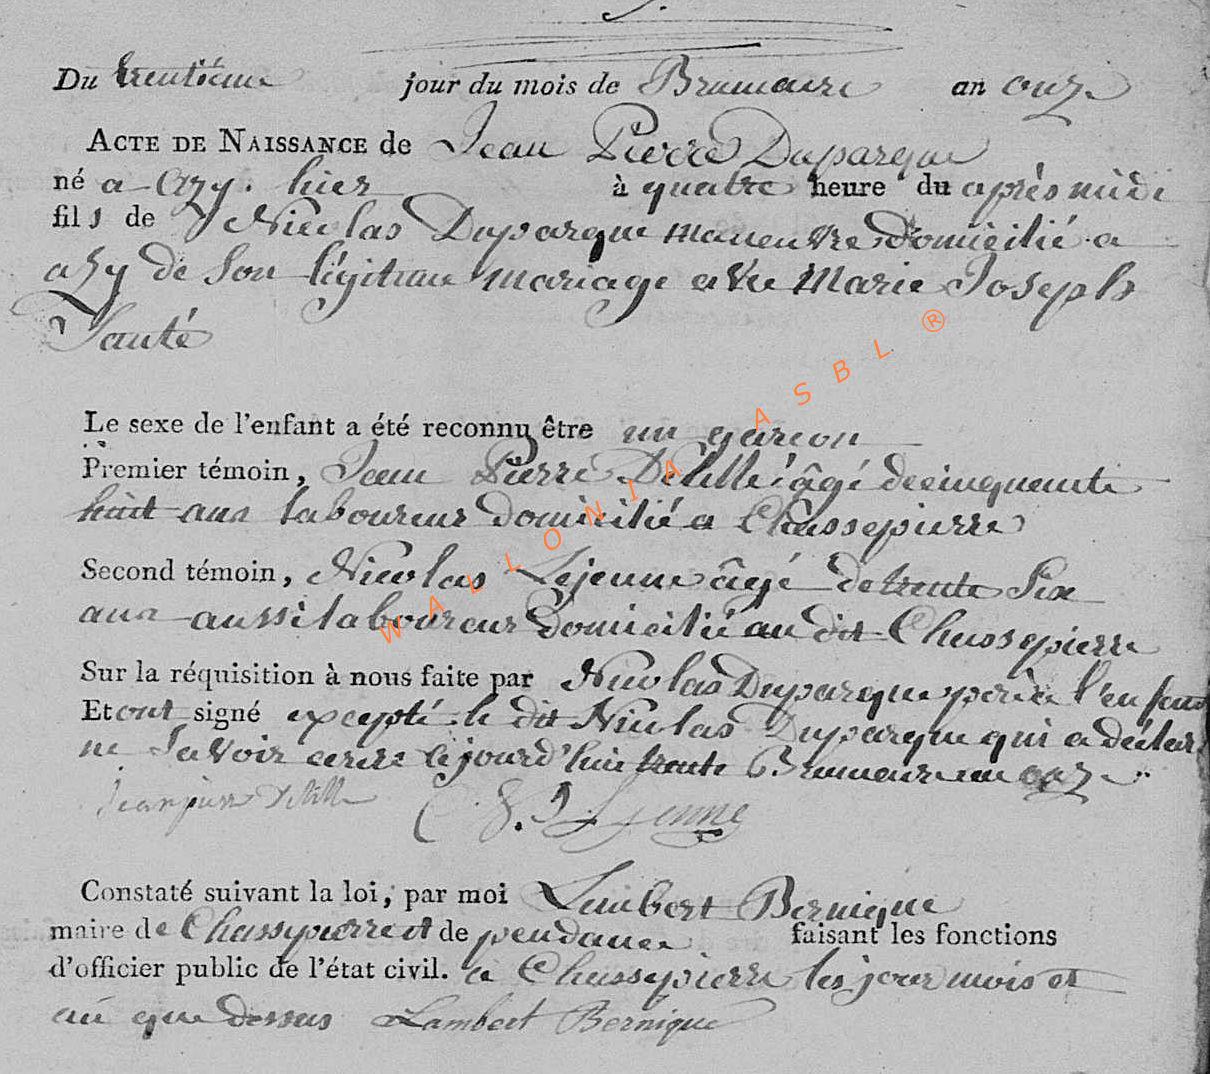 5.
Du trentième jour du mois de Brumaire an onze
ACTE DE NAISSANCE de Jean Pierre Duparque
né a azy. hier à quatre heure du après midi
fils de Nicolas Duparque maneuvre domicilié a
azy de son légitime mariage avec Marie Joseph
Santé
Le sexe de l'enfant a été reconnu être un garçon
Premier témoin, Jean Pierre Delille âgé de cinquente
huit ans laboureur domicilié a Chassepierre
Second témoin, Nicolas Lejeune âgé de trente six
ans aussi laboureur domicilié au dit Chassepierre
Sur la réquisition à nous faite par Nicolas Duparque père a l'enfent
Et ont signé excepté le dit Nicolas Duparque qui a déclar
ne savoir ecrire cejourd'hui trente Brumaire an onze
jean pierre Delille Lejeune
Constaté suivant la loi, par moi Lambert Bernique
maire de Chassepierre et de pendance faisant les fonctions
d'officier public de l'état civil. a Chassepierre les jour mois et
an que dessus Lambert Bernique
WALLONIA ASBL ®